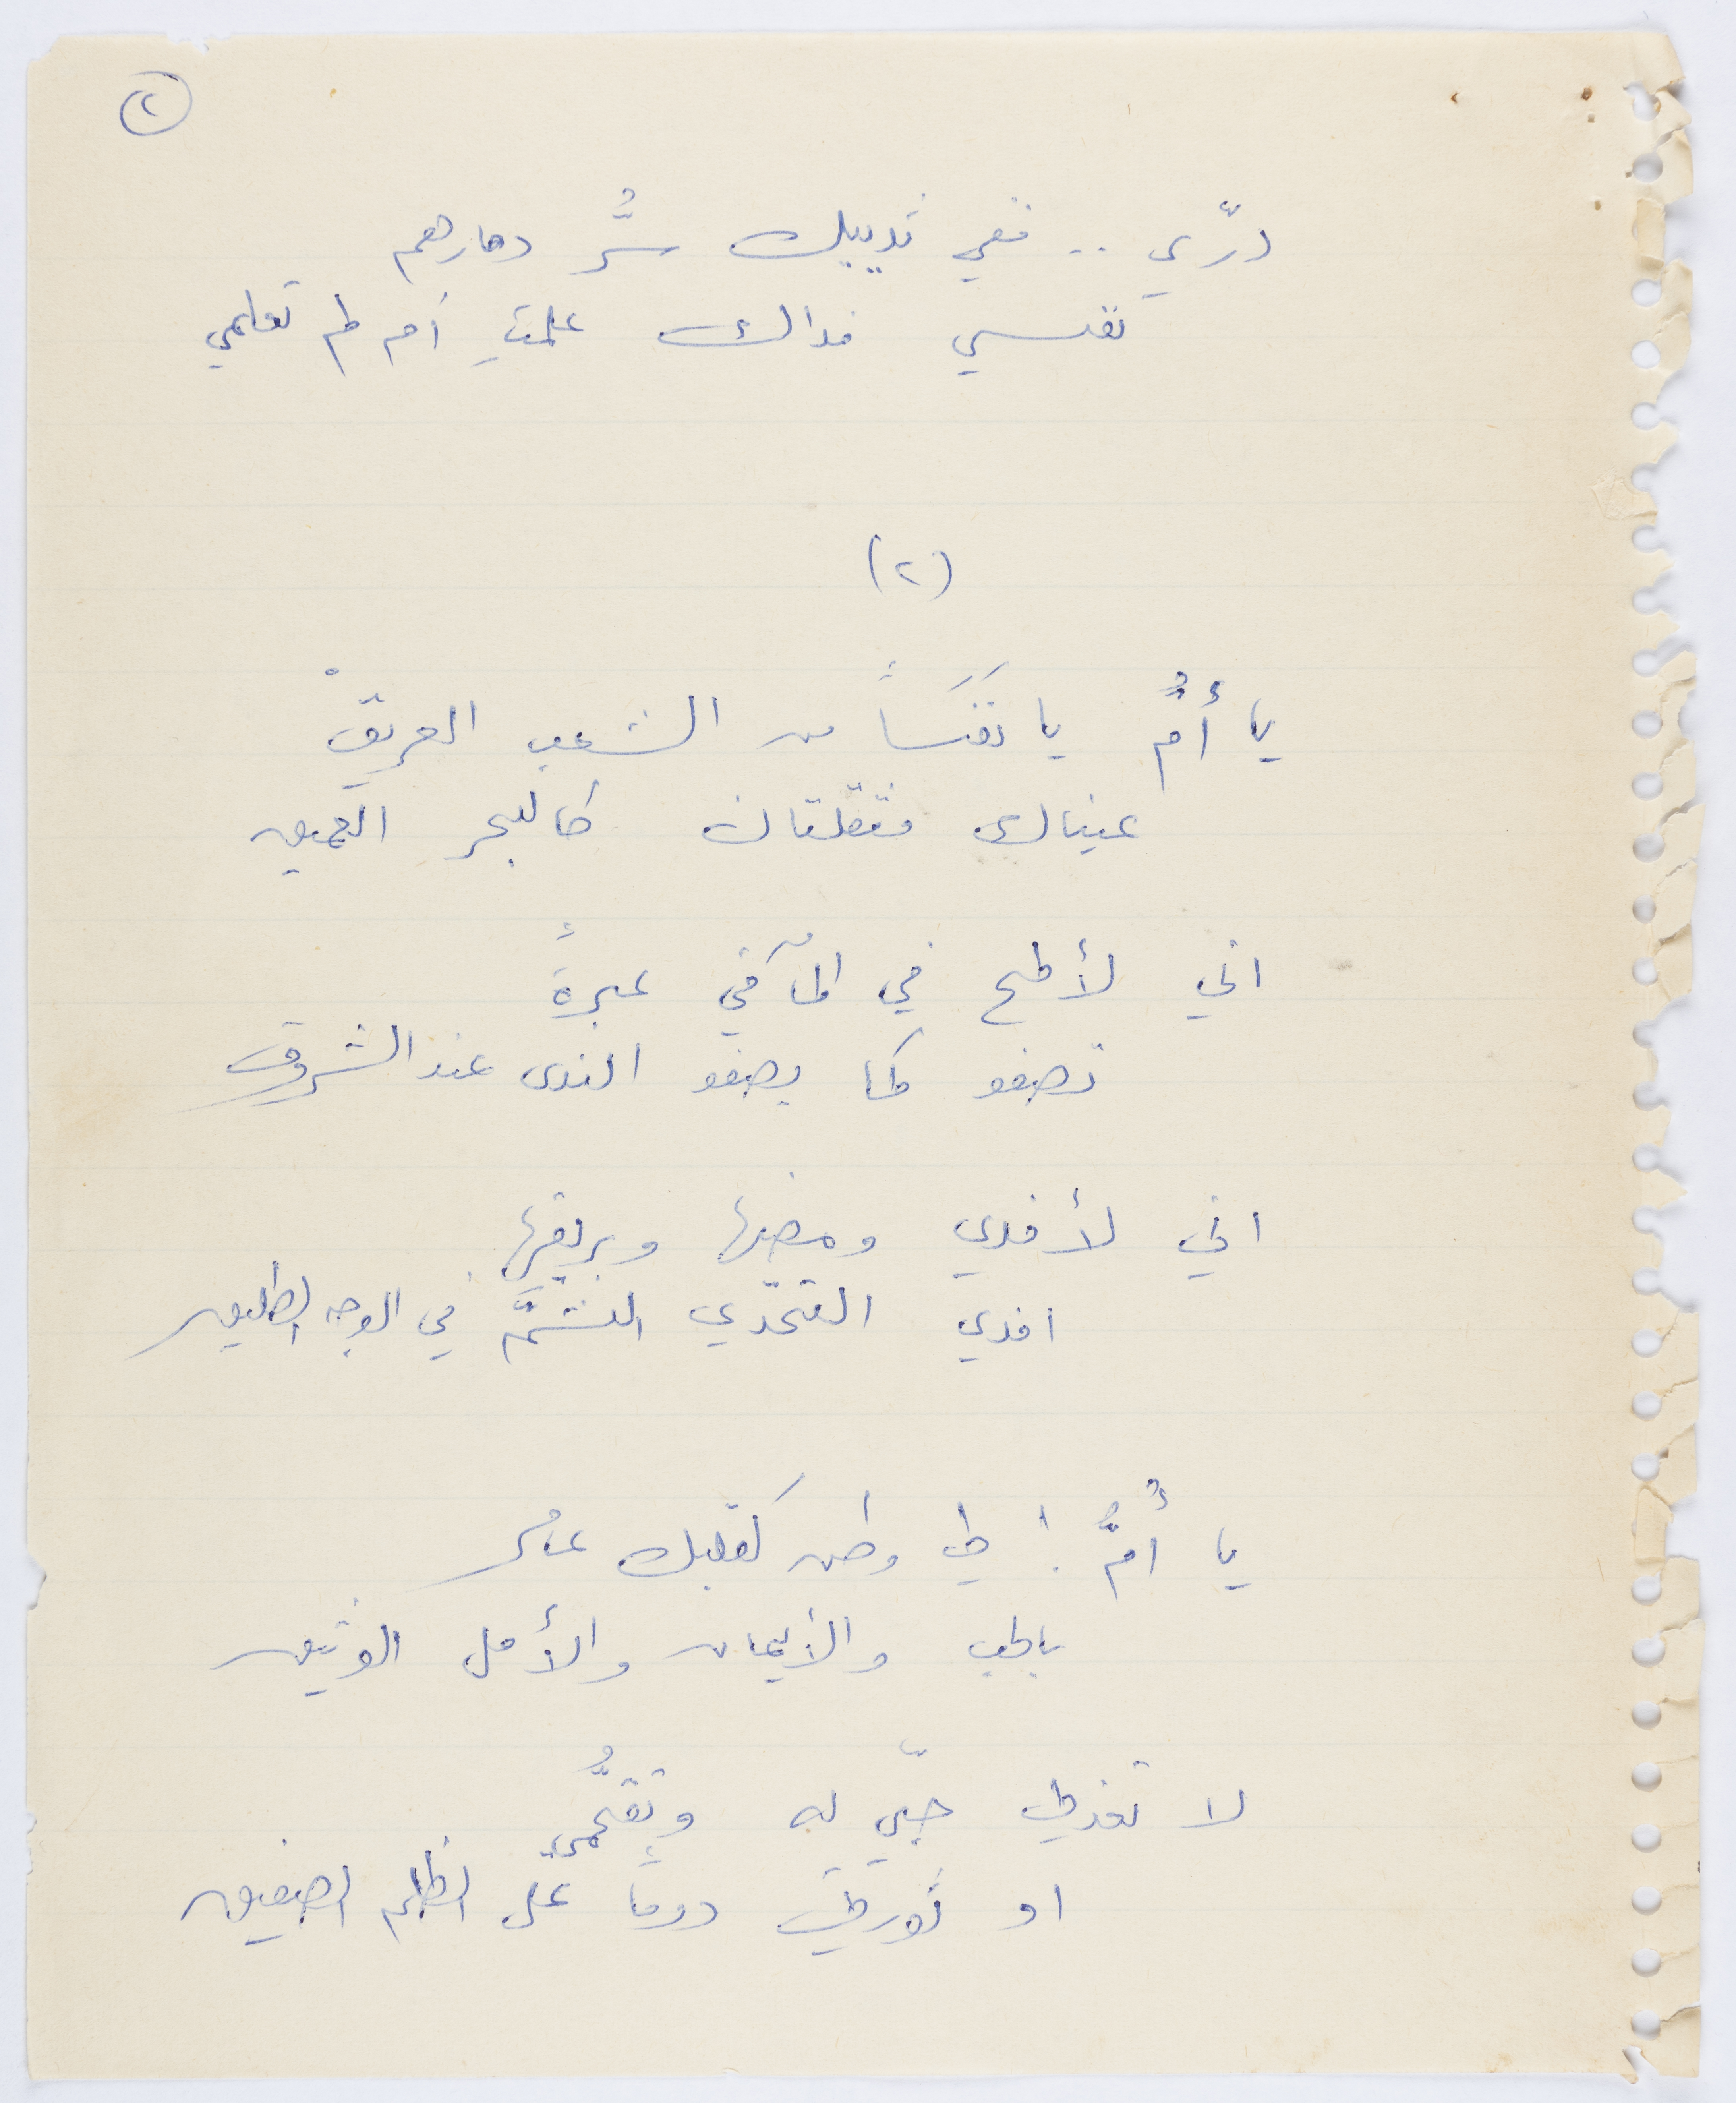 ٢
درّي .. ففي ثدييك سُّر دمارهم
نفسي فداك علمتِ أم لم تعلمي
(٢)
يا أمُّ يا نَفَسَاً من الشعب العريقْ
عيناك مثقلتان كالبحر العميق
اني لألمح في المآقي عبرةً
تصفو كما يصفو الندى عند الشروق
اني لأفدي ومضها وبريقها
افدي التحدّي الشمَّ في الوجه الطليق
يا أُمُّ ! لي وطن كقلبك عامر
بالحب والأيمان والأمل الوثيق
لا تعذلي حبّي له وتقحُّمي
او ثورتي دوماً على الظلم الصفيق